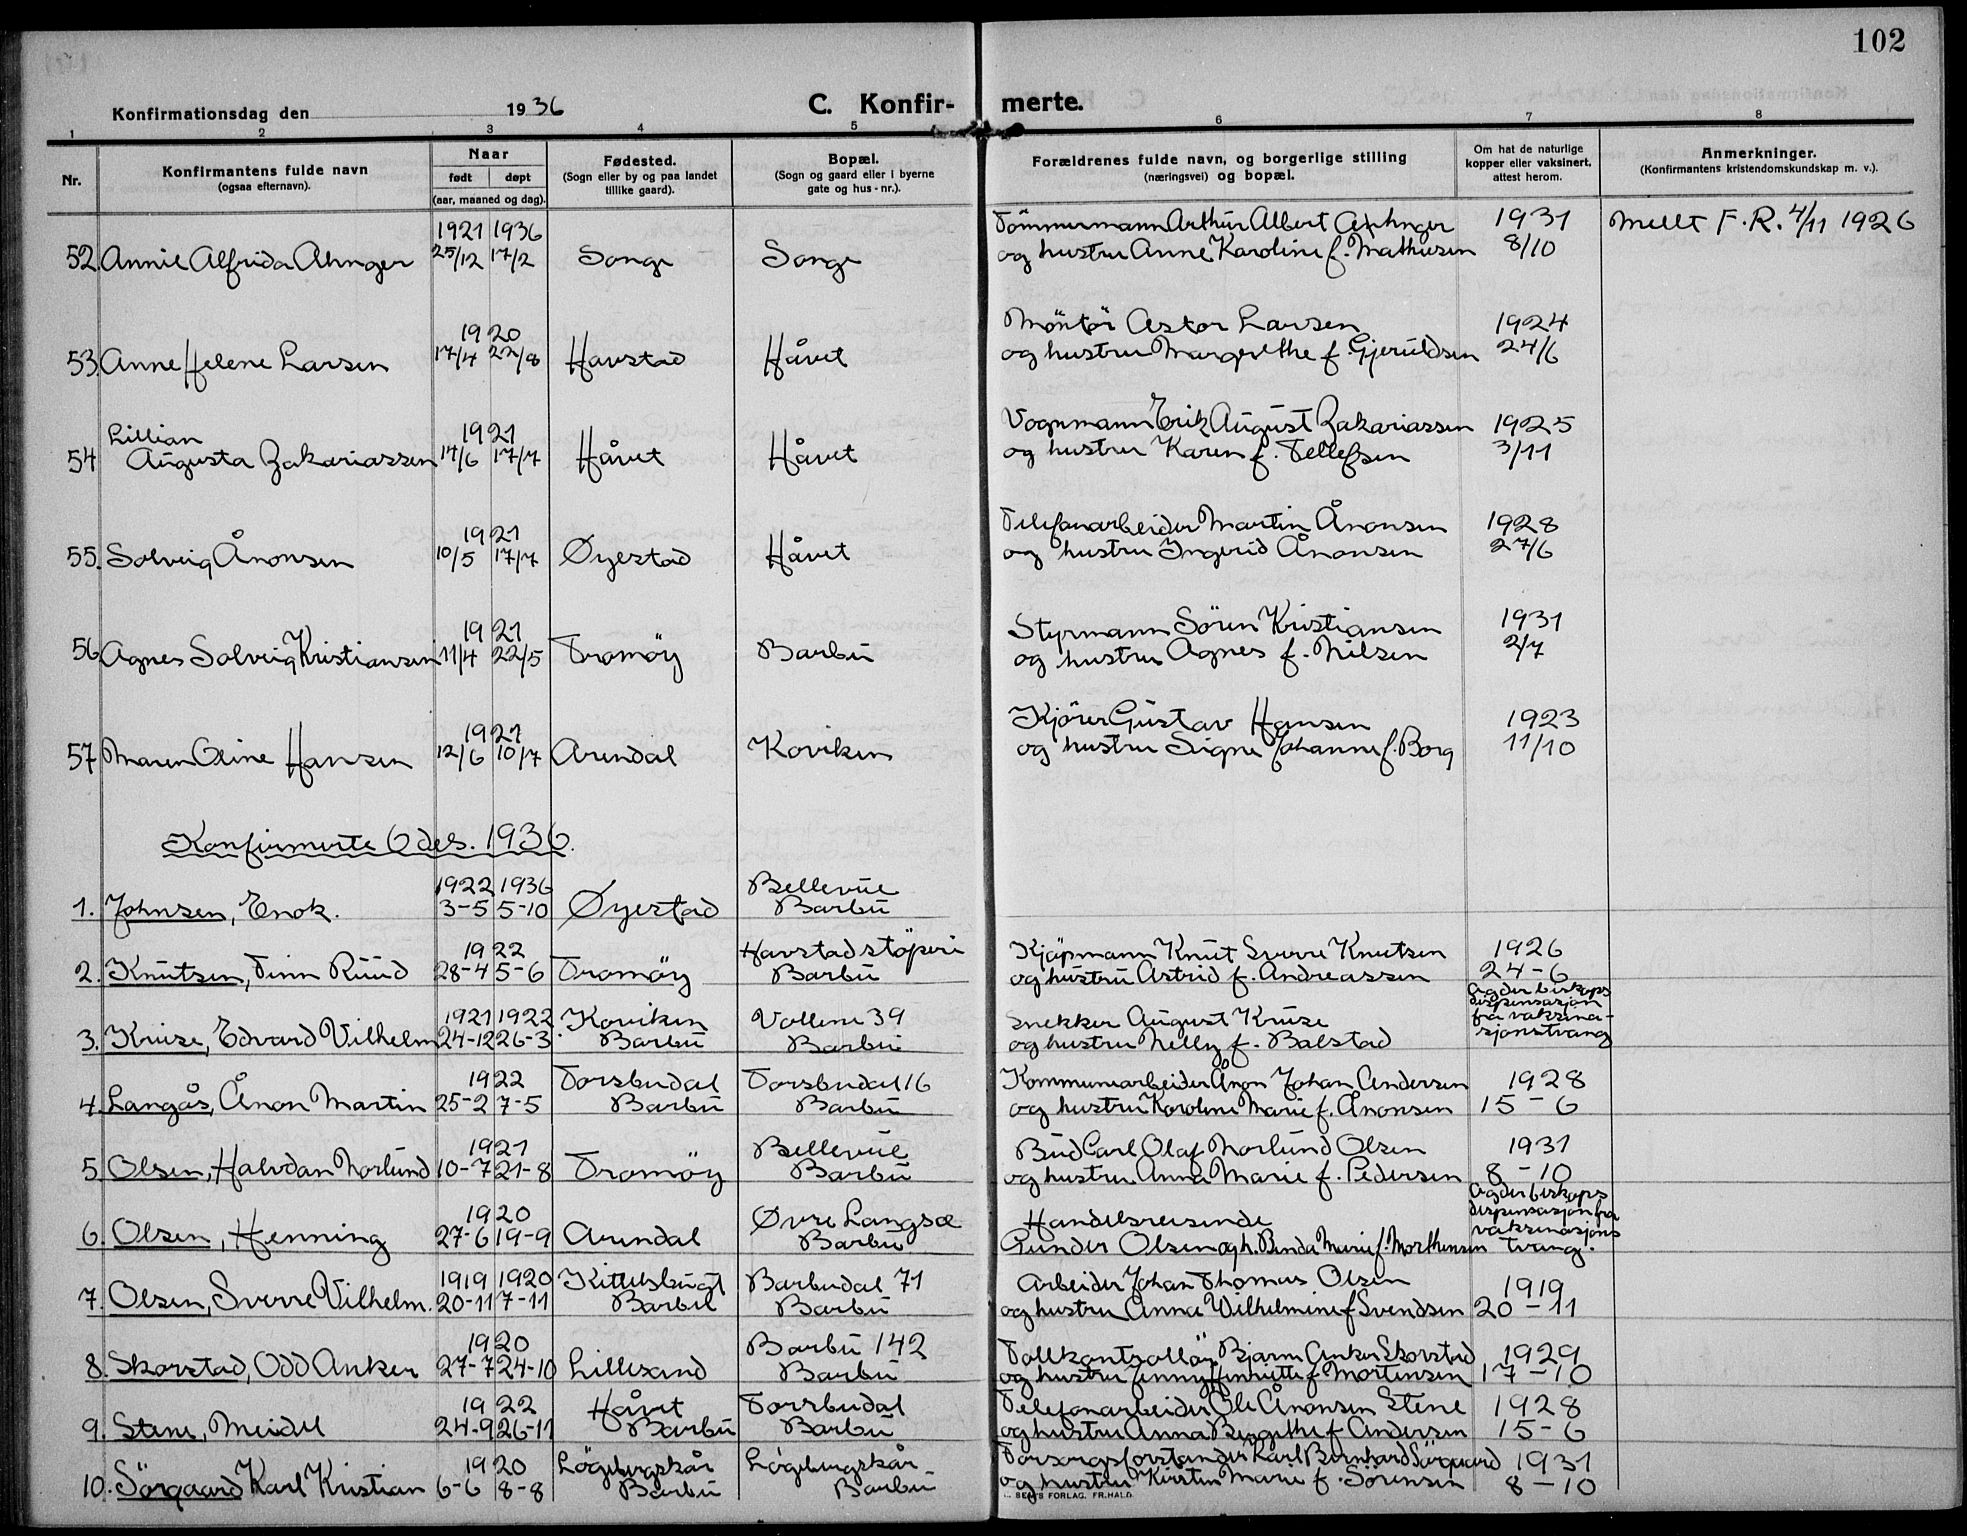 102
Konfirmationsdag den 1936 C. Konfir- merte.
1 2 3 4 5 6 7 8
Nr.
Konfirmantens fulde navn
(ogsaa efternavn).
Naar
født døpt
(aar, maaned og dag).
Fødested.
(Sogn eller by og paa landet
tillike gaard).
Bopæl.
(Sogn og gaard eller i byerne
gate og hus-nr.).
Forældrenes fulde navn, og borgerlige stilling
(næringsvei) og bopæl.
Om hat de naturlige
kopper eller vaksinert,
attest herom.
Anmerkninger.
(Konfirmantens kristendomskundskap m. v.).
1921 1936 Tömmermann Arthur Albert Ahnger 1931 Meldt F.R. 4/11 1926
52 Annie Alfrida Ahnger 25/12 17/2 Songe Songe og hustru Anne Karoline f. Mathiesen 8/10
1920 Montör Astor Larsen 1924
53. Anne Helene Larsen 17/4 22/8 Havstad Håvet og hustru Margrethe f. Gjeruldsen 24/6
Lillian 1921 Vognmann Erik August Zakariassen 1925
54 Augusta Zakariassen 14/6 17/7 Håvet Håvet og hustru Karen f. Tellefsen 3/11
1921 Telefonarbeider Martin Ånonsen 1928
55. Solveig Ånonsen 10/5 17/7 Øyestad Håvet og hustru Ingerid Ånonsen 27/6
1921 Styrmann Sören Kristiansen 1931
56 Agnes Solveig Kristiansen 11/4 22/5 Tromöy Barbu og hustru Agnes f. Nilsen 2/7
1921 Kjörer Gustav Hansen 1923
57 Maren Oline Hansen 12/6 10/7 Arendal Koviken og hustru Signe Johanne f. Borg 11/10
Konfirmerte 6 des. 1936.
1922 1936 Bellevue
1. Johnsen, Enok. 3-5 5-10 Øyestad Barbu
1922 Havstad støperi Kjøpmann Knut Sverre Knutsen 1926
2. Knutsen, Finn Ruud 28-4 5-6 Tromöy Barbu og hustru Astrid f. Andreassen 24-6
1921 1922 Koviken Vollene 39 Snekker August Kruse Agder biskops dispensasjon
3. Kruse, Edvard Vilhelm 24-12 26-3 Barbu Barbu og hustru Nelly f. Balstad fra vaksina-
sjonstvang
1922 Torsbudal Torsbudal 16 Kommunearbeider Ånon Johan Andersen 1928
4. Langås, Ånon Martin 25-2 7-5 Barbu Barbu og hustru Karoline Marie f. Ånonsen 15-6
1921 Bellevue Bud Carl Olaf Norlund Olsen 1931
5. Olsen, Halvdan Norlund 10-7 21-8 Tromöy Barbu og hustru Anna Marie f. Pedersen 8-10
1920 Øvre Langsæ Handelsreisende Agder biskops
dispensasjon fra
vaksinasjons
6. Olsen, Henning 27-6 19-9 Arendal Barbu Gunder Olsen og h. Benda Marie f. Morthensen tvang.
1919 1920 Kittelsbugt Barbudal 71 Arbeider Johan Thomas Olsen 1919
7. Olsen, Sverre Vilhelm. 20-11 7-11 Barbu Barbu og hustru Anna Wilhelmine f Svendsen 20-11
1920 Barbu 142 Tollkontrollör Bjarne Anker Skorstad 1929
8. Skorstad, Odd Anker 27-7 24-10 Lillesand Barbu og hustru Jenny Henriette f Mortensen 17-10
1922 Håvet Torsbudal Telefonarbeider Ole Ånonsen Stene 1928
9. Stene, Meidel 24-9 26-11 Barbu Barbu og hustru Anna Birgithe f Andersen 15-6
1920 Lögebergskår Lögebergskår Forsorgsforstander Karl Bernhard Sörgaard 1931
10. Sörgaard Karl Kristian 6-6 8-8 Barbu Barbu og hustru Kirsten Marie f. Sörensen 8-10
SEM'S FORLAG. FR.HALD.